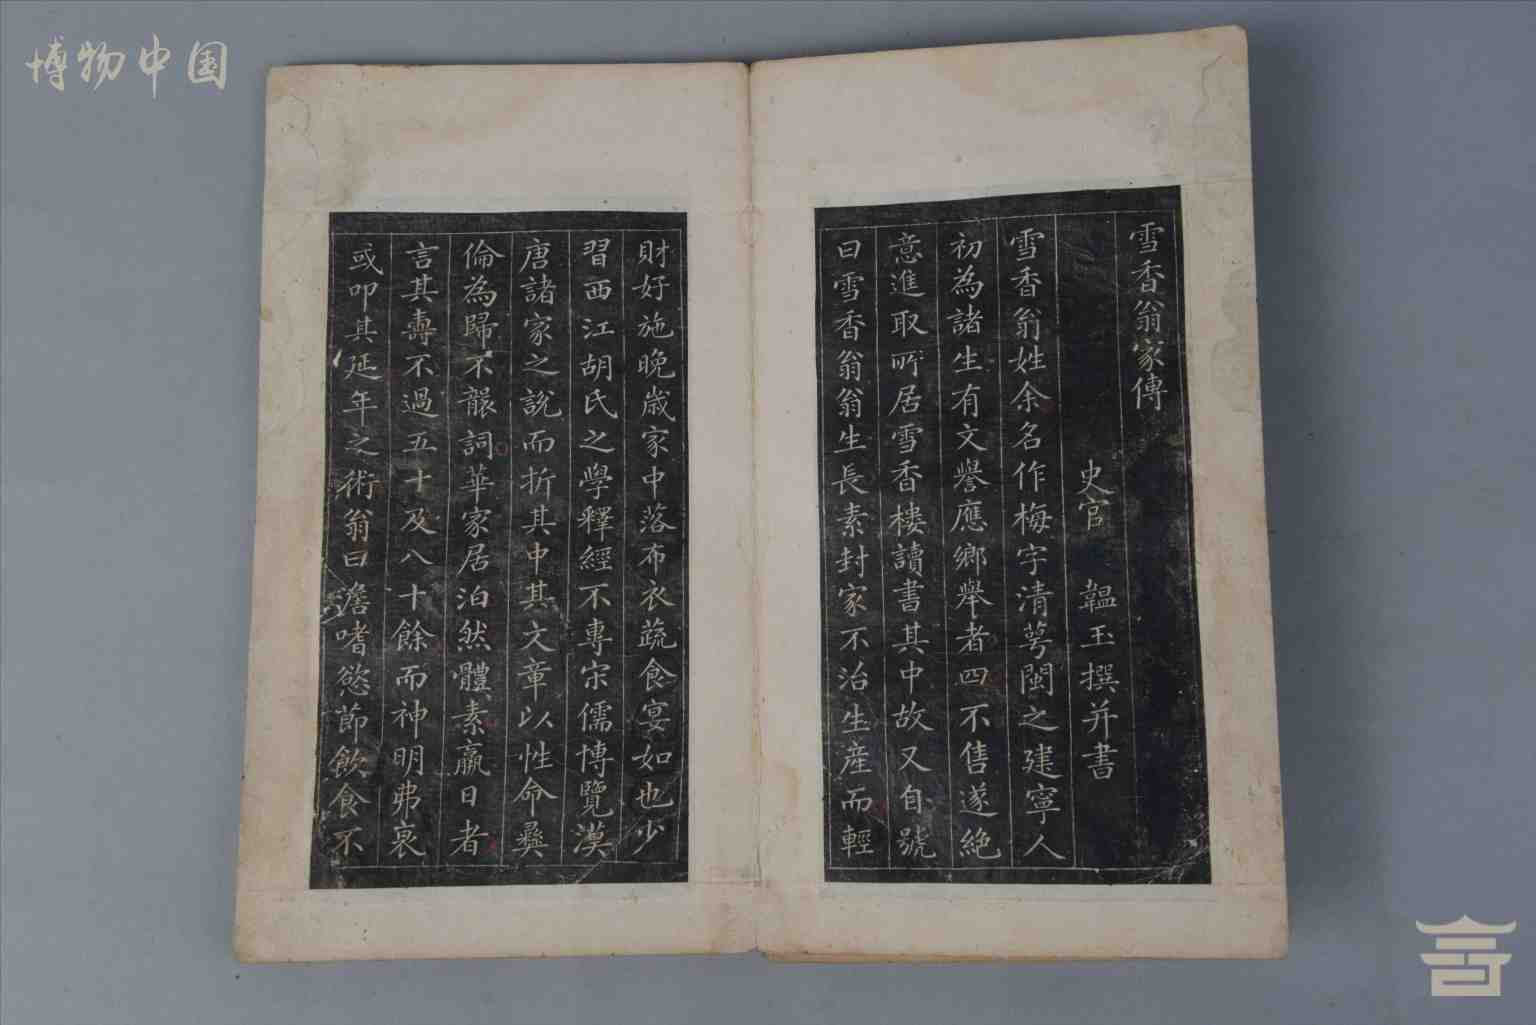 博物中国
雪香翁家傳
史官 韞玉撰并書
雪香翁姓余名作梅字清萼閩之建寧人
初為諸生有文譽應鄉舉者四不售遂絕
意進取所居雪香樓讀書其中故又自號
曰雪香翁翁生長素封家不治生産而輕
財好施晚歲家中落布衣蔬食宴如也少
習西江胡氏之學釋經不專宋儒博覽漢
唐諸家之說而折其中其文章以性命彝
倫為歸不襲詞華家居泊然體素羸日者
言其壽不過五十及八十餘而神明弗衰
或叩其延年之術翁曰澹嗜慾節飲食不